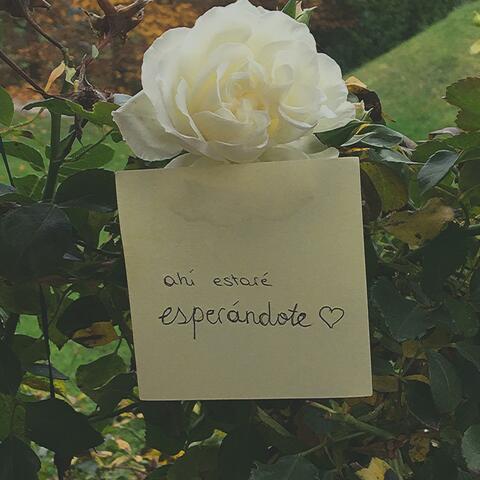 ahí estaré
esperándote ♡